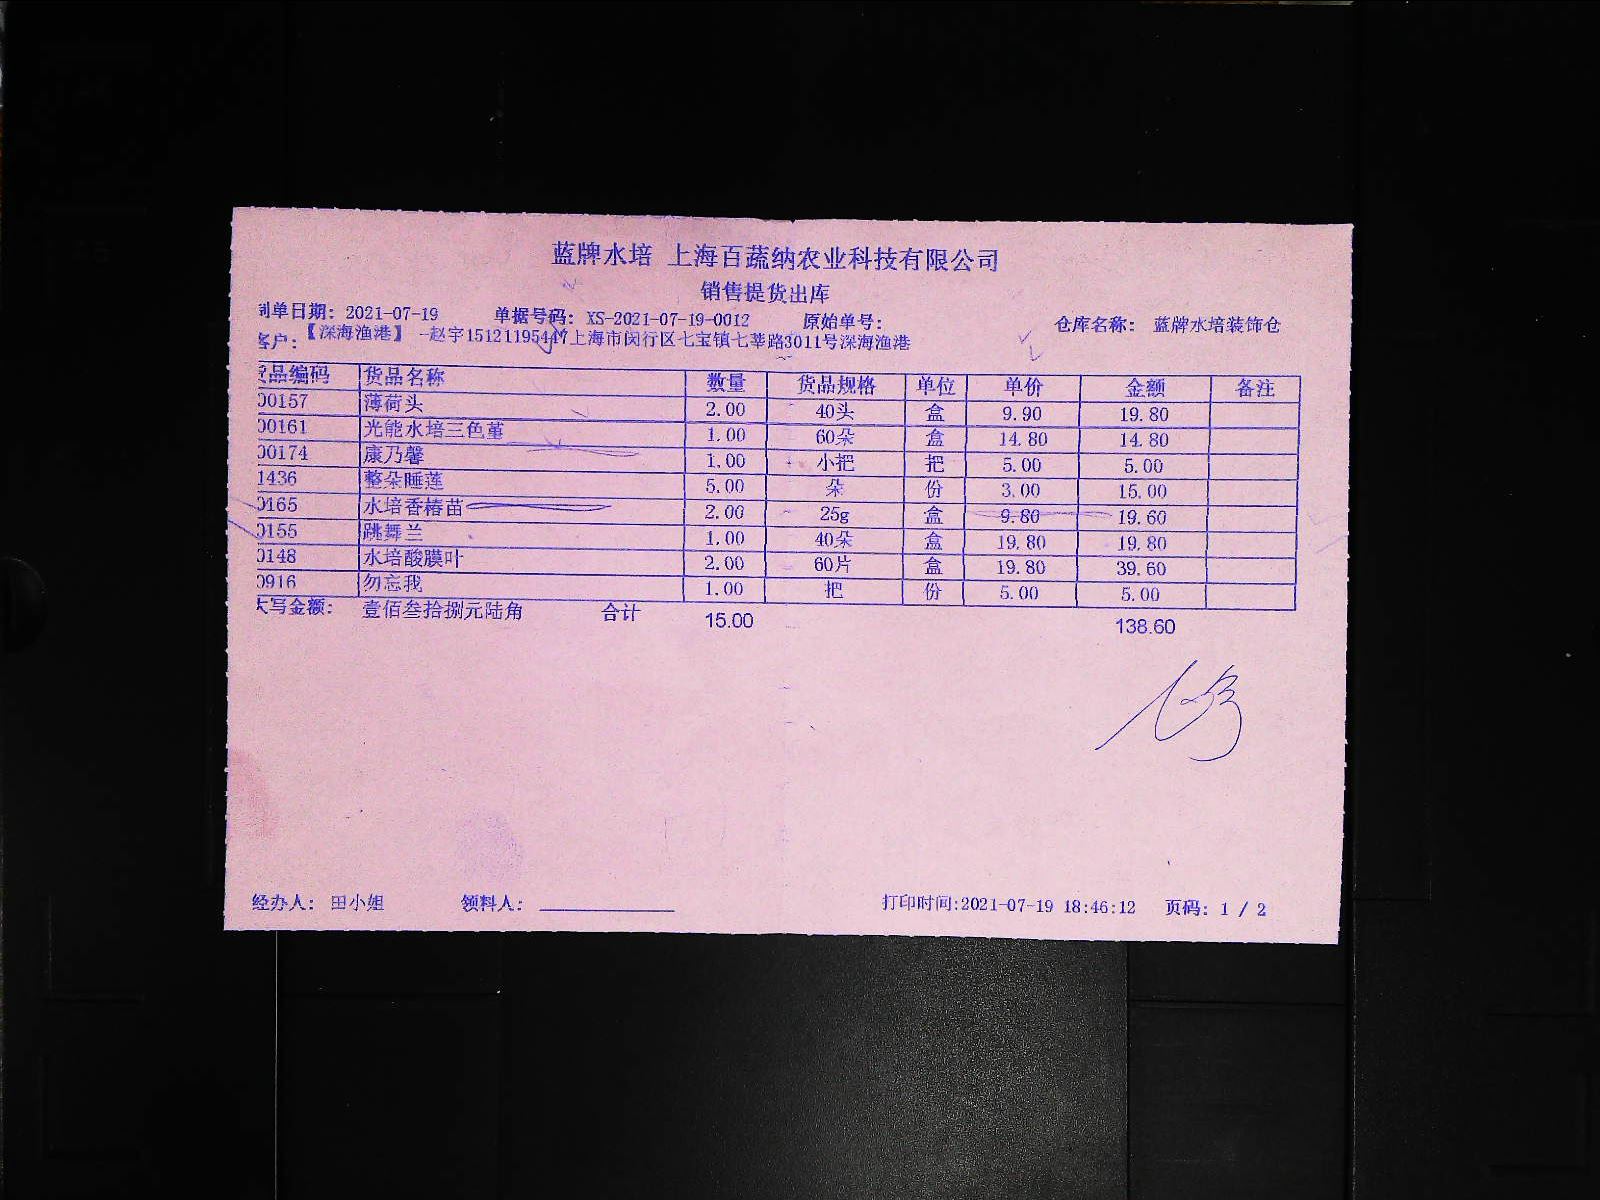 蓝牌水培 上海百蔬纳农业科技有限公司
销售提货出库
制单日期: 2021-07-19 单据号码: XS-2021-07-19-0012 原始单号: 仓库名称: 蓝牌水培装饰仓
客户: 【深海渔港】 -赵宇15121195447上海市闵行区七宝镇七莘路3011号深海渔港
货品编码 货品名称 数量 货品规格 单位 单价 金额 备注
00157 薄荷头 2.00 40头 盒 9.90 19.80
00161 光能水培三色堇 1.00 60朵 盒 14.80 14.80
00174 康乃馨 1.00 小把 把 5.00 5.00
1436 整朵睡莲 5.00 朵 份 3.00 15.00
0165 水培香椿苗 2.00 25g 盒 9.80 19.60
0155 跳舞兰 1.00 40朵 盒 19.80 19.80
0148 水培酸膜叶 2.00 60片 盒 19.80 39.60
0916 勿忘我 1.00 把 份 5.00 5.00
大写金额: 壹佰叁拾捌元陆角 合计 15.00 138.60
经办人: 田小姐 领料人: 打印时间:2021-07-19 18:46:12 页码: 1 / 2